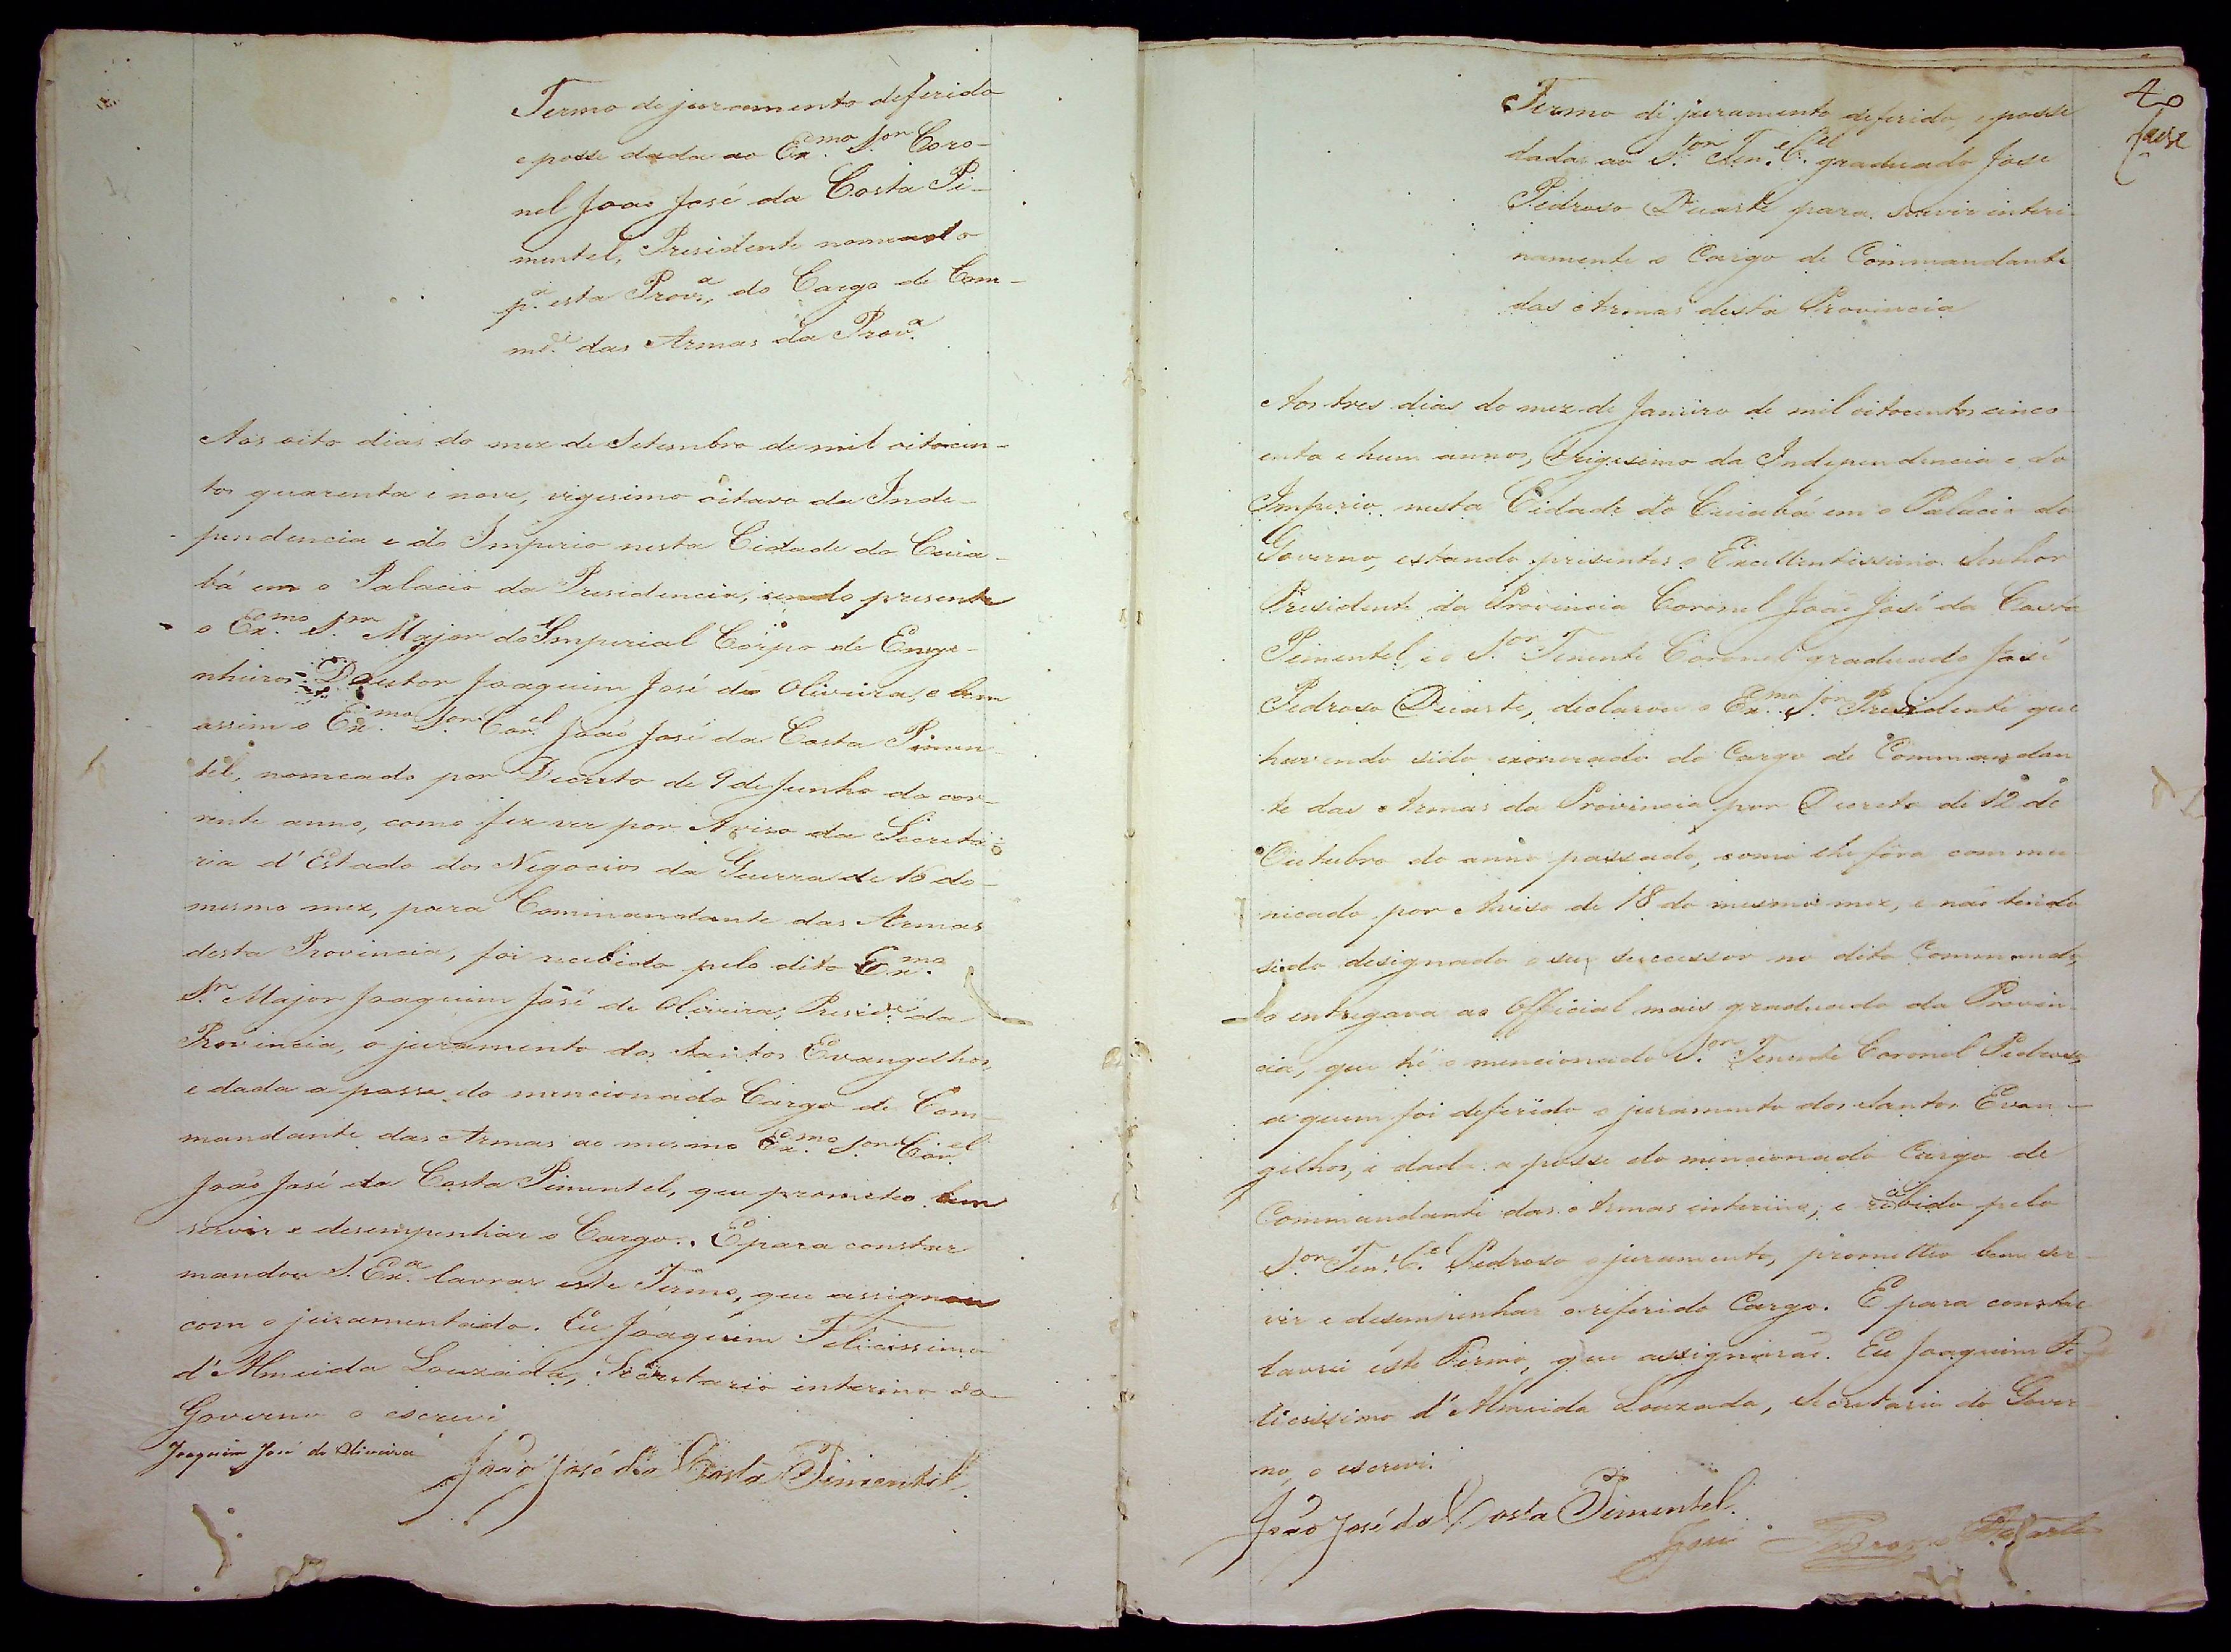 Termo de juramento deferido
e posse dada ao Ex.mo S.or Coro-
nel João José da Costa Pi-
mentel, Presidente nomeado
p.a esta Prov.a, do Cargo de Com-
m.de das Armas da Prov.a
Aos oito dias do mez de Setembro de mil oitocen-
tos quarenta e nove, vigesimo oitavo da Inde-
pendencia e do Imperio nesta Cidade do Cuia-
bá em o Palacio da Presidencia, sendo presente
o Ex.mo S.nr Major do Imperial Corpo de Enge-
nheiros Doutor Joaquim José de Oliveira, e bem
assim o Ex.mo S.or Cor.el João José da Costa Pimen-
tel, nomeado por Decreto de 9 de Junho do cor-
rente anno, como fez ver por Aviso da Secreta-
ria d'Estado dos Negocios da Guerra de 16 do
mesmo mez, para Commandante das Armas
desta Provincia, foi recebido pelo dito Ex.mo
S.nr Major Joaquim José de Oliveira, Presid.e da
Provincia, o juramento dos Santos Evangelhos,
e dada a posse do mencionado Cargo de Com-
mandante das Armas ao mesmo Ex.mo S.or Cor.el
João José da Costa Pimentel, que prometeo bem
servir e desempenhar o Cargo. E para constar
mandou S. Ex.a lavrar este Termo, que assignou
com o juramentado. Eu Joaquim Felicissimo
d'Almeida Louzada, Secretario interino do
Governo o escrevi
Joaquim José de Oliveira
João José da Costa Pimentel.
40
Termo de juramento deferido, e posse
dada ao S.or Ten.e C.el graduado José
Pedroso Duarte para servir interi-
namente o Cargo de Commandante
das Armas desta Provincia
Aos tres dias do mez de Janeiro de mil oitocentos cinco
enta e hum annos, Trigesimo da Independencia e do
Imperio nesta Cidade do Cuiabá em o Palacio do
Governo, estando presentes o Excellentissimo Senhor
Presidente da Provincia Coronel João José da Costa
Pimentel, e o S.or Tenente Coronel graduado José
Pedroso Duarte, declarou o Ex.mo S.or Presidente que
havendo sido exonerado do Cargo de Commandan
te das Armas da Provincia por Decreto de 12 de
Outubro do anno passado, como lhe fôra commu
nicado por Aviso de 18 do mesmo mez, e não tendo
sido designado o seu successor no dito Commando,
o entregava ao Official mais graduado da Provin-
cia, que hé o mencionado S.or Tenente Coronel Pedroso,
a quem foi deferido o juramento dos Santos Evan-
gelhos, e dada a posse do mencionado Cargo de
Commandante das Armas interino; e recebido pelo
S.or Ten.e C.el Pedroso o juramento, prometteo bem ser-
vir e desempenhar o referido Cargo. E para constar
lavrei este Termo, que assignarão. Eu Joaquim Fe-
licissimo d'Almeida Louzada, Secretario do Gover-
no, o escrevi.
João José da Costa Pimentel.
José Pedrozo Duarte